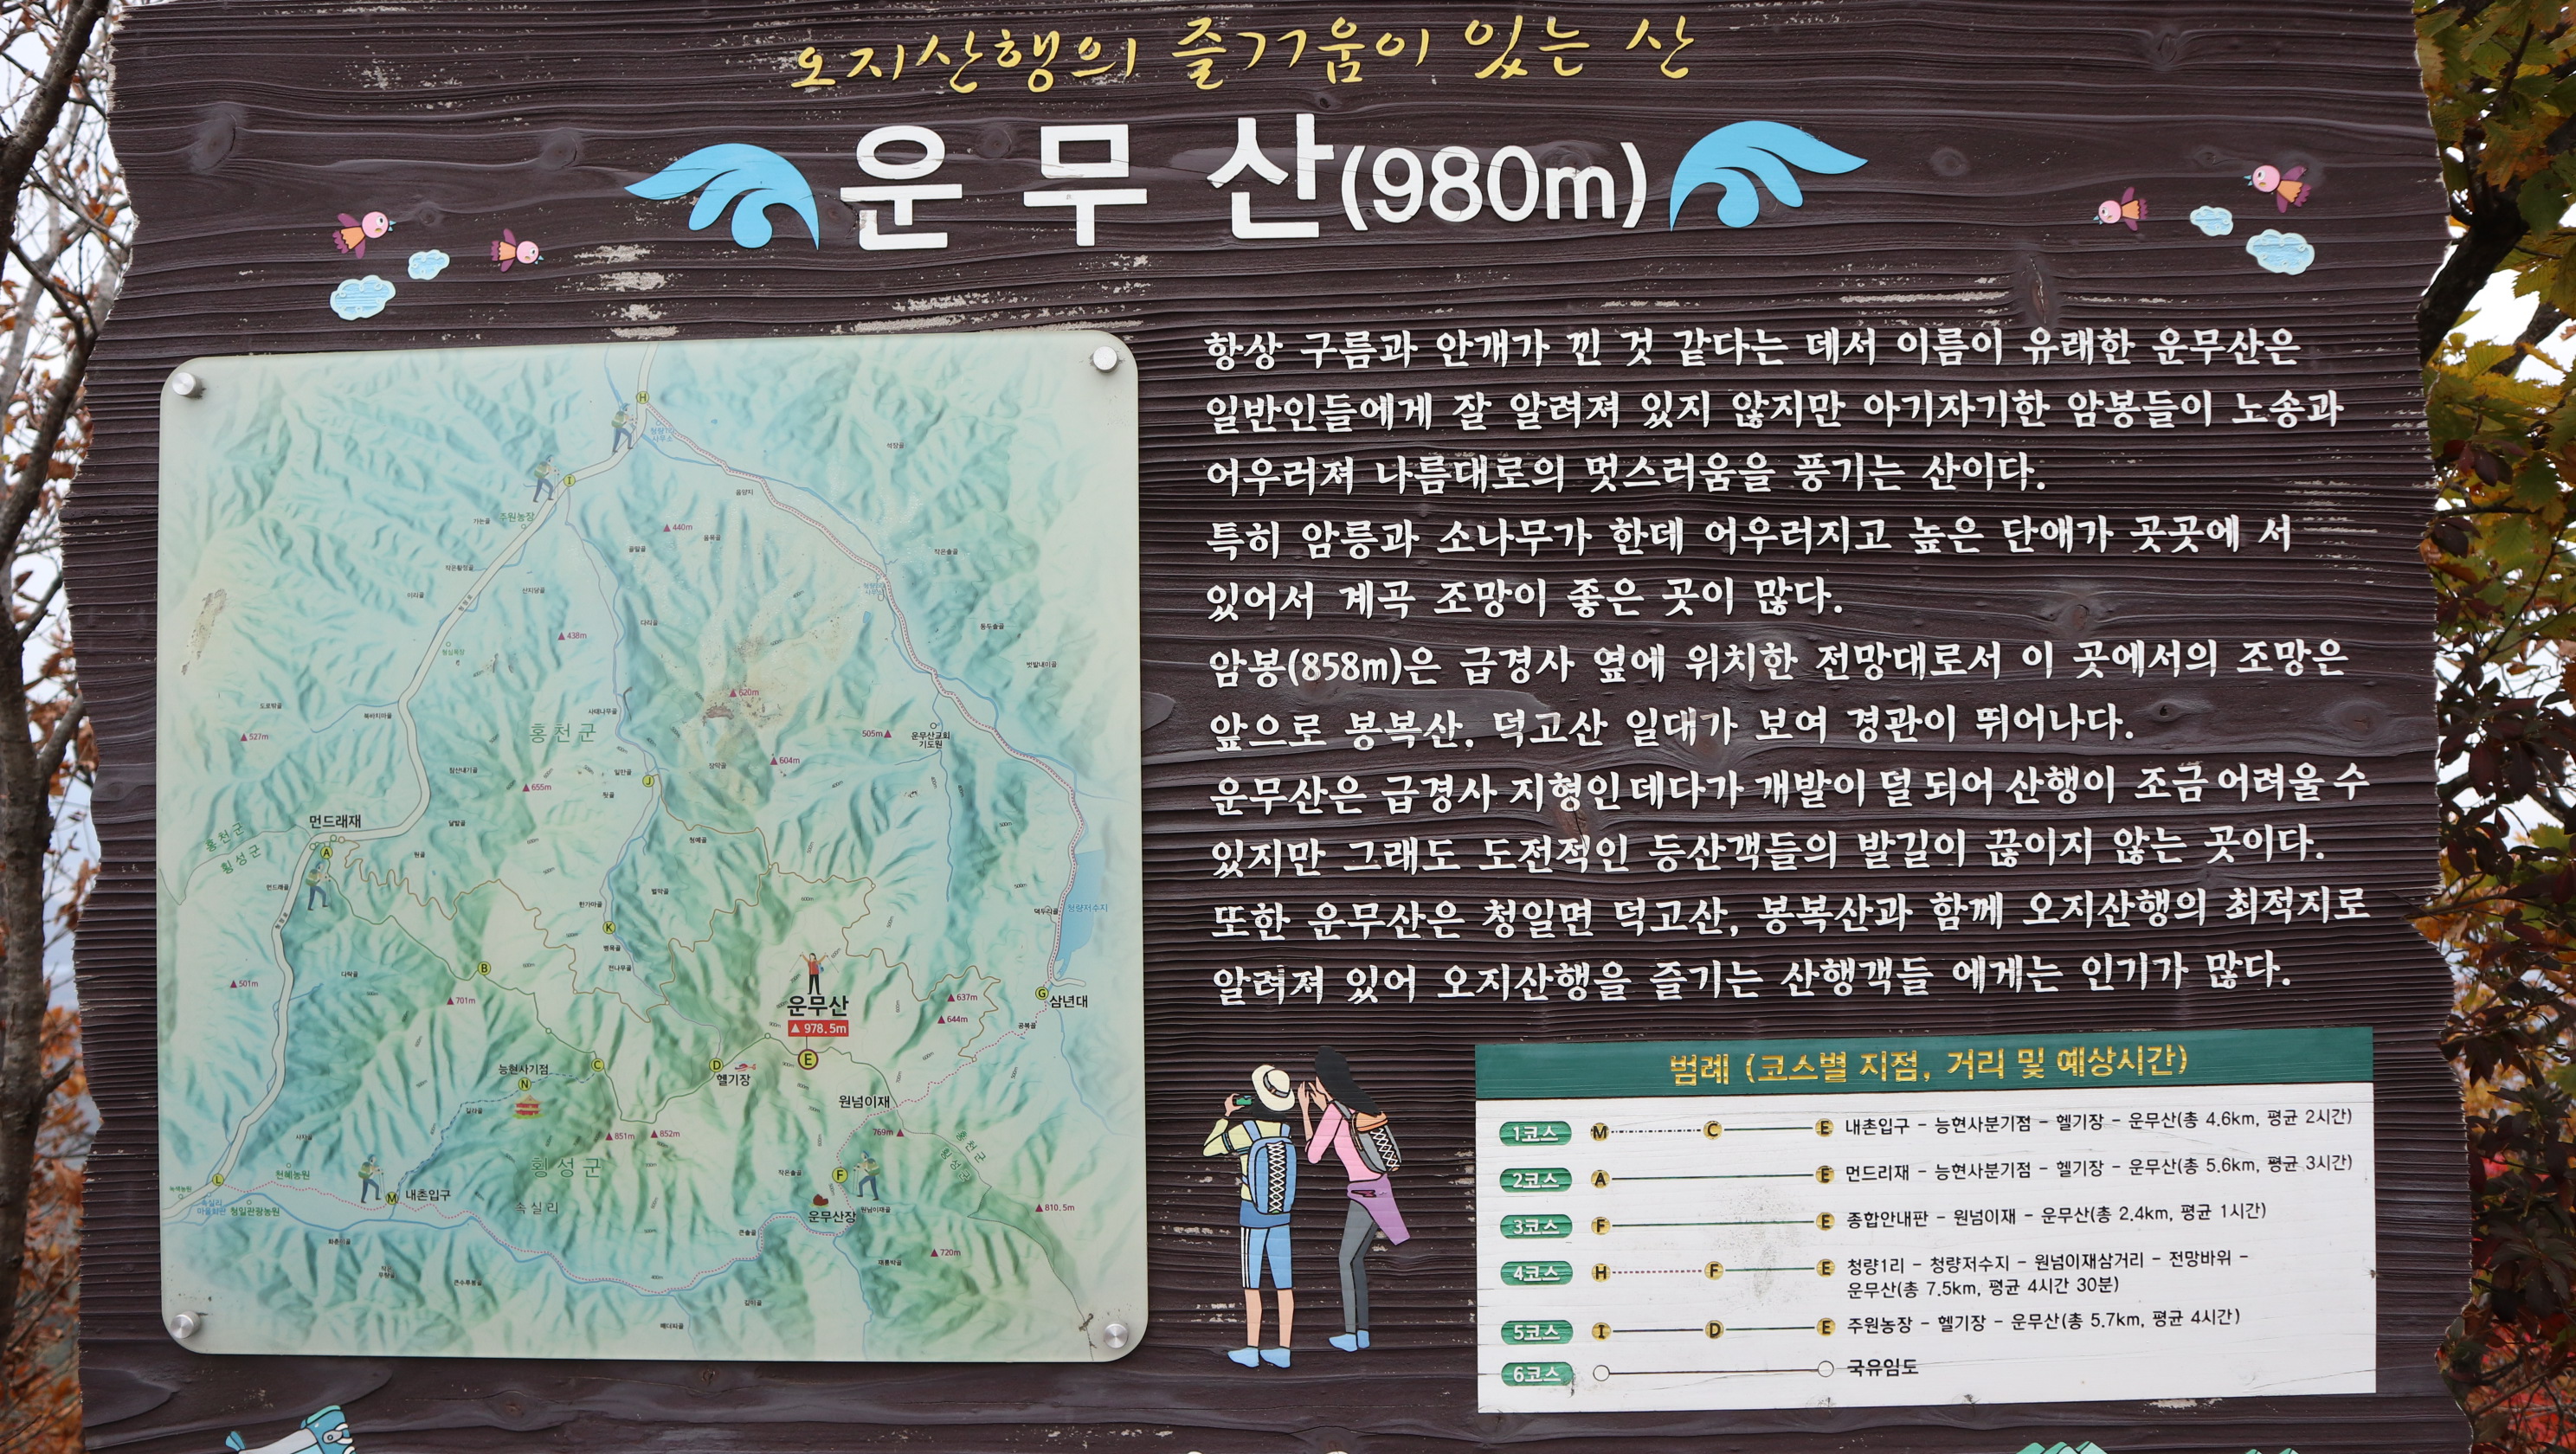 오지산행의 즐거움이 있는 산
운무산(980m)
항상 구름과 안개가 낀 것 같다는 데서 이름이 유래한 운무산은
일반인들에게 잘 알려져 있지 않지만 아기자기한 암봉들이 노송과
어우러져 나름대로의 멋스러움을 풍기는 산이다.
특히 암릉과 소나무가 한데 어우러지고 높은 단애가 곳곳에 서
있어서 계곡 조망이 좋은 곳이 많다.
암봉(858m)은 급경사 옆에 위치한 전망대로서 이 곳에서의 조망은
앞으로 봉복산, 덕고산 일대가 보여 경관이 뛰어나다.
운무산은 급경사 지형인데다가 개발이 덜 되어 산행이 조금 어려울 수
있지만 그래도 도전적인 등산객들의 발길이 끊이지 않는 곳이다.
또한 운무산은 청일면 덕고산, 봉복산과 함께 오지산행의 최적지로
알려져 있어 오지산행을 즐기는 산행객들 에게는 인기가 많다.
H
I
주원농장
440m
438m
620m
홍천군
527m
505m
운무산교회
기도원
604m
655m
J
먼드래재
홍천군
횡성군
A
청량저수지
K
B
501m
701m
운무산
978.5m
637m
644m
G
삼년대
E
D
헬기장
C
능현사기점
N
원넘이재
769m
851m
852m
홍천군
횡성군
횡성군
F
L
천혜농원
M
내촌입구
속실리
청일관광농원
운무산장
원넘이재골
810.5m
720m
범례 (코스별 지점, 거리 및 예상시간)
1코스 M C E 내촌입구 - 능현사분기점 - 헬기장 - 운무산(총 4.6km, 평균 2시간)
2코스 A E 먼드리재 - 능현사분기점 - 헬기장 - 운무산(총 5.6km, 평균 3시간)
3코스 F E 종합안내판 - 원넘이재 - 운무산(총 2.4km, 평균 1시간)
4코스 H F E 청량1리 - 청량저수지 - 원넘이재삼거리 - 전망바위 -
운무산(총 7.5km, 평균 4시간 30분)
5코스 I D E 주원농장 - 헬기장 - 운무산(총 5.7km, 평균 4시간)
6코스 국유임도